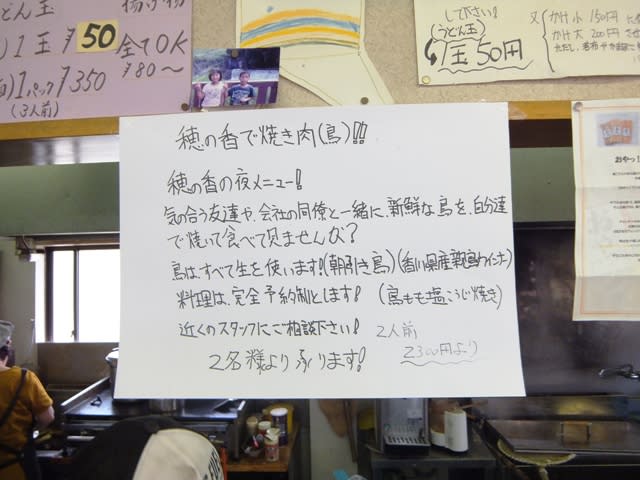 どん玉
揚げ物
1玉 ¥50 全てOK
1パック ¥350
¥80〜
(3人前)
して下さい!
(うどん玉)
1玉50円
又
かけ小 150円
かけ大 200円
穂の香で焼き肉(鳥)!!
穂の香の夜メニュー!
気の合う友達や、会社の同僚と一緒に、新鮮な鳥を、自分達
で焼いて食べて見ませんか?
鳥は、すべて生を使います!(朝引き鳥)(香川県産親鳥わィンナ)
料理は、完全予約制とします! (鳥もも塩こうじ焼き)
近くのスタッフにご相談下さい! 2人前
2300円より
2名様より承ります!
おやっ!